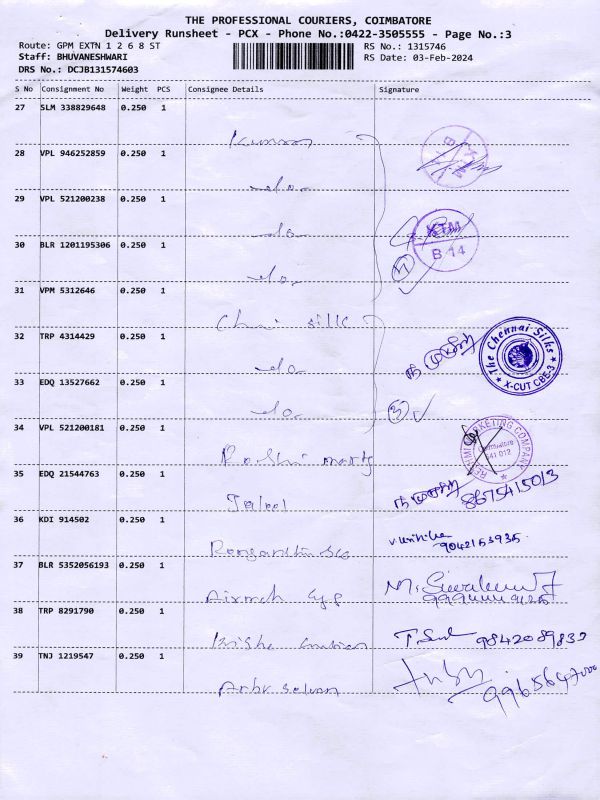 THE PROFESSIONAL COURIERS, COIMBATORE
Delivery Runsheet - PCX - Phone No.:0422-3505555 - Page No.:3
Route: GPM EXTN 1 2 6 8 ST RS No.: 1315746
Staff: BHUVANESHWARI RS Date: 03-Feb-2024
DRS No.: DCJB131574603
S No Consignment No Weight PCS Consignee Details Signature
27 SLM 338829648 0.250 1
Kumaran
28 VPL 946252859 0.250 1
do.
29 VPL 521200238 0.250 1
do.
KTM
B 14
30 BLR 1201195306 0.250 1
do.
7
31 VPM 5312646 0.250 1
Chennai silks
32 TRP 4314429 0.250 1
do.
The Chennai Silks
X-CUT CBE-3
33 EDQ 13527662 0.250 1
do.
3
34 VPL 521200181 0.250 1
RESHMI MARKETING COMPANY
Coimbatore
641 012
35 EDQ 21544763 0.250 1
8675415013
36 KDI 914502 0.250 1
9042153935
37 BLR 5352056193 0.250 1
M. Sivakumar
38 TRP 8291790 0.250 1
9842089832
39 TNJ 1219547 0.250 1
Arbu selvan